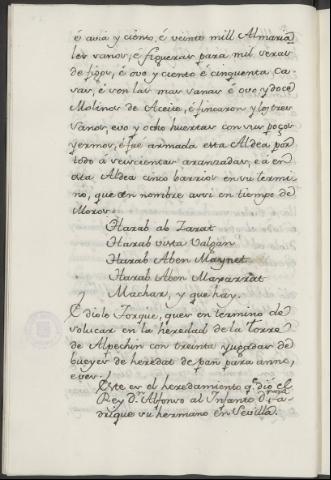 é avia y ciento, é veinte mill Almaria
les vanos, é figueras para mil seras
de figos, é ovo y ciento é cinquenta ca-
sas, é son las mas vanas é ovo y doce
Molinos de Aceite, é fincaron y los tres
vanos, evo y ocho huertas con sus poços
yermos, é fué asmada esta Aldea por
todo á seiscientas aranzadas, e a en
esta Aldea cinco barrios en su termi
no, que an nombre assi en tiempo de
Moros.
Harab al Zarat
Harab vista Valgan
Harab Aben Maynet
Harab Aben Mazarrat
y Machar, y que hay.
E diole Torque, que es en termino de
Solucar en la heredad de la torre
de Alpechin con treinta yugadas de
bueyes de heredat de pan para anno,
e ves.
Este es el heredamiento q.e dió el
Rey D.n Alfonso al Infante D.n Fa-
drique su hermano en Sevilla.